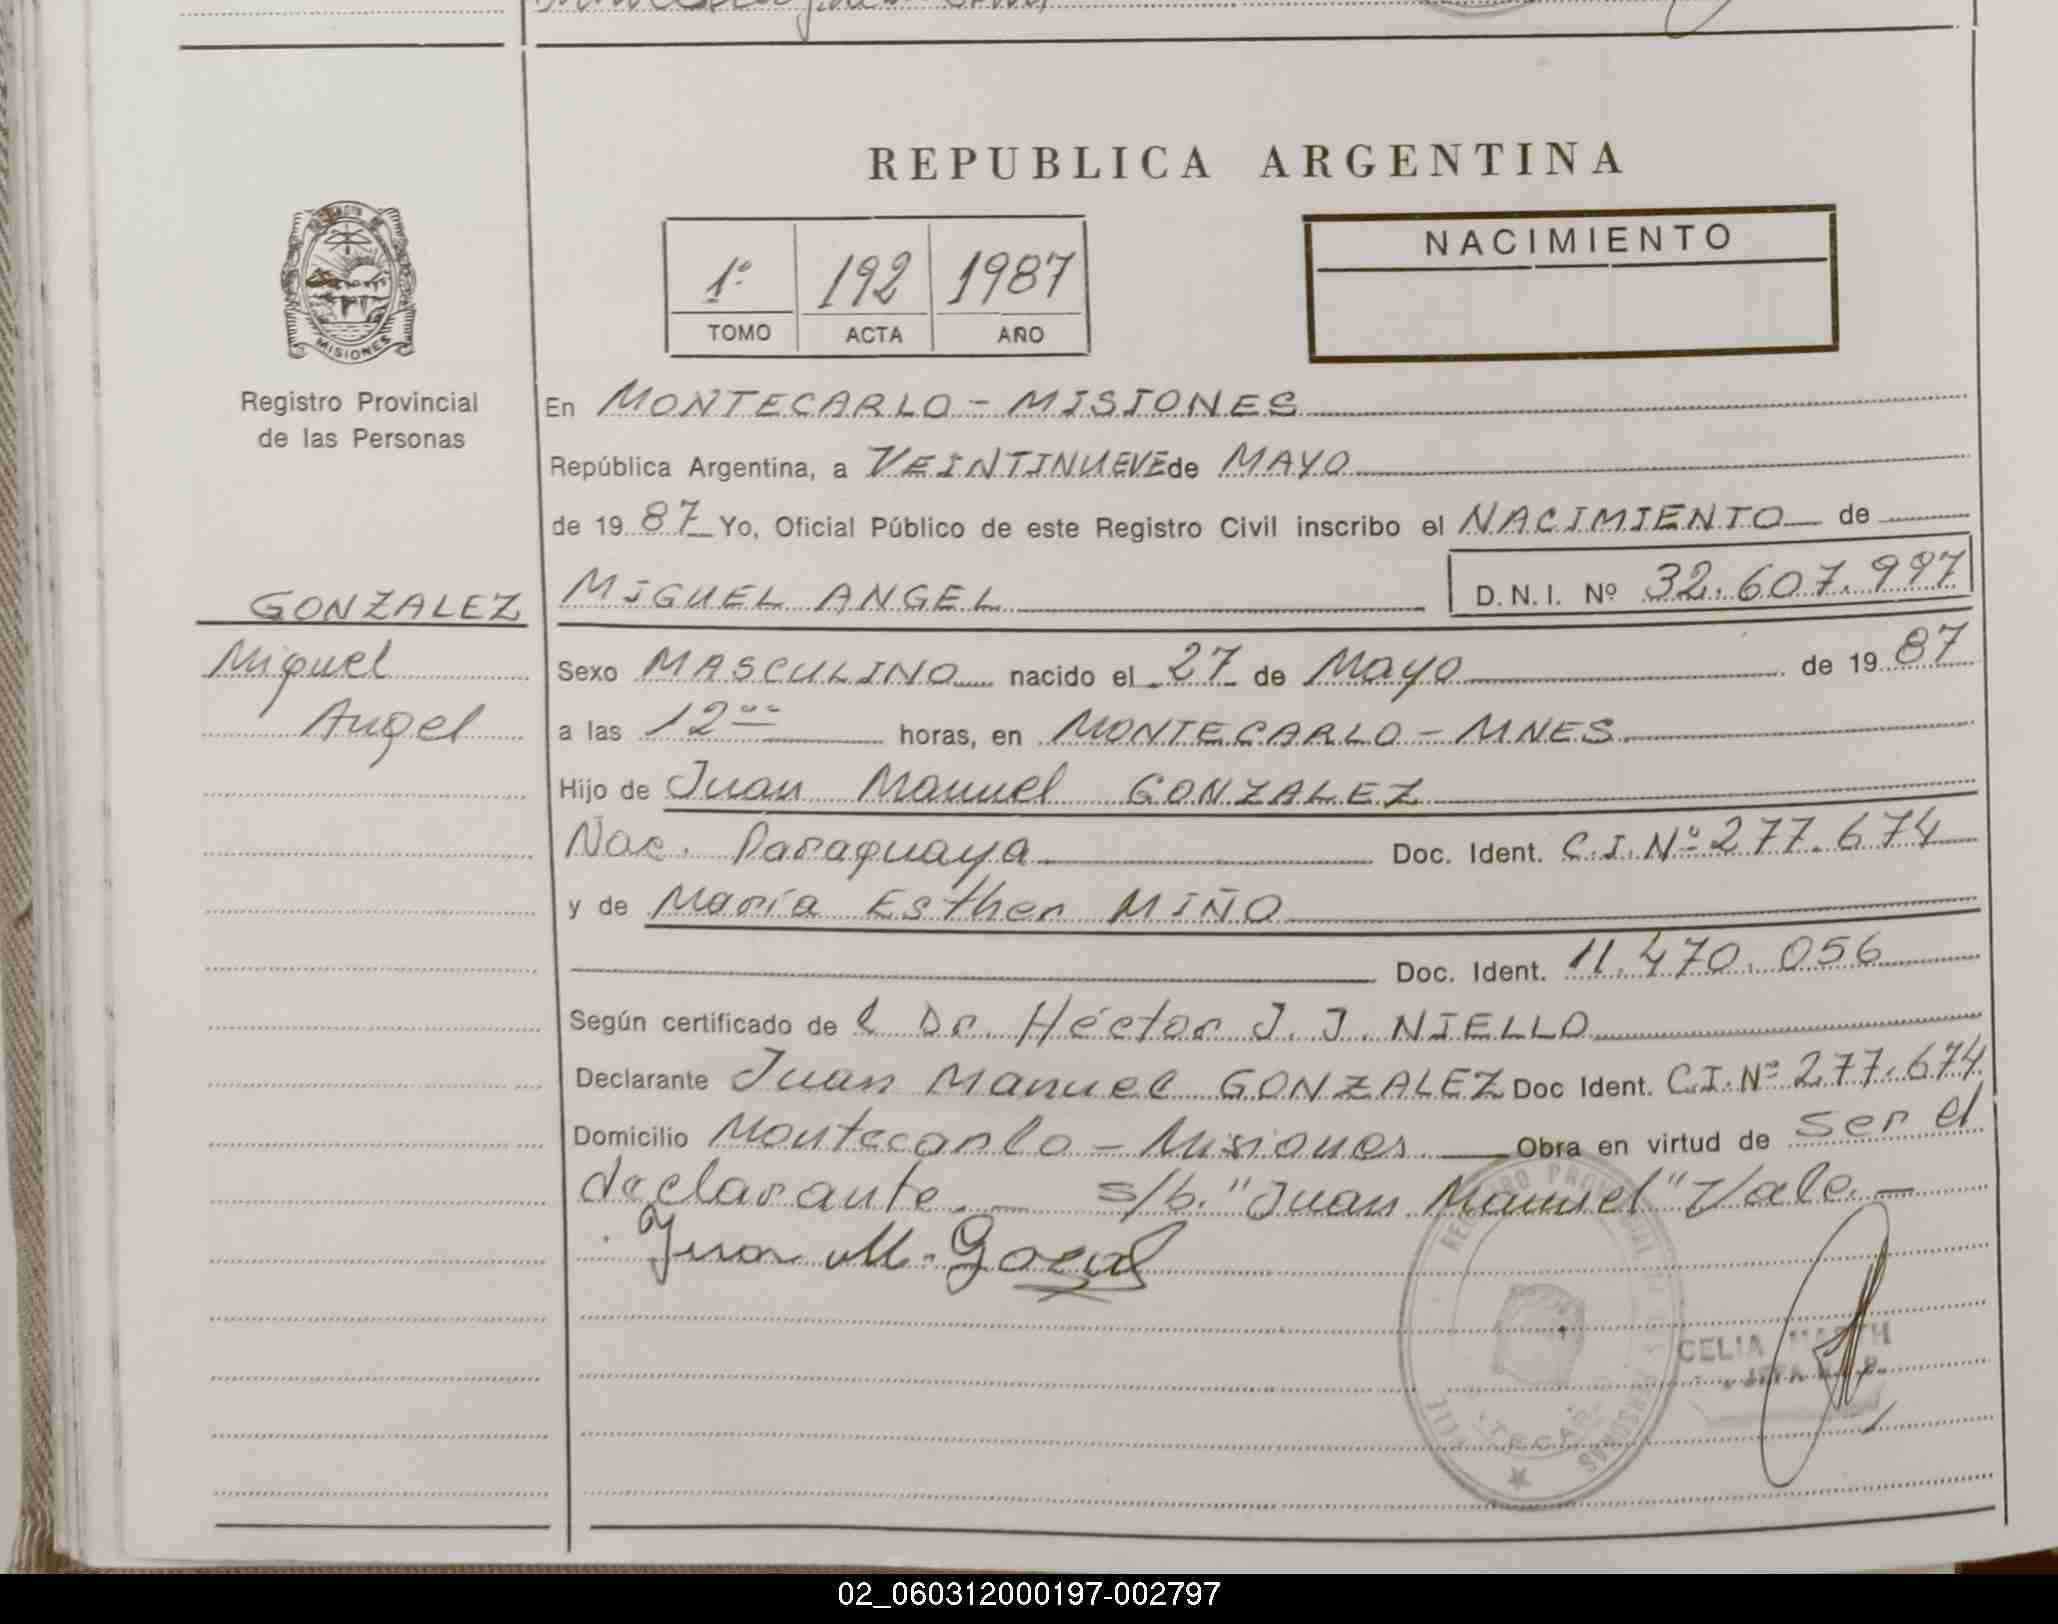 REPUBLICA ARGENTINA
1º 192 1987
TOMO ACTA AÑO
NACIMIENTO
MISIONES
Registro Provincial
de las Personas
En MONTECARLO - MISIONES
República Argentina, a VEINTINUEVE de MAYO
de 19 87 Yo, Oficial Público de este Registro Civil inscribo el NACIMIENTO de
GONZALEZ
Miguel
Angel
MIGUEL ANGEL D.N.I. Nº 32.607.997
Sexo MASCULINO nacido el 27 de Mayo de 19 87
a las 12 horas, en MONTECARLO - MNES
Hijo de Juan Manuel GONZALEZ
Nac. Paraguaya Doc. Ident. C.I.Nº 277.674
y de María Esther MIÑO
Doc. Ident. 11.470.056
Según certificado de l Dr. Héctor J. J. NIELLO
Declarante Juan Manuel GONZALEZ Doc Ident. C.I.Nº 277.674
Domicilio Montecarlo - Misiones Obra en virtud de ser el
declarante. s/b. "Juan Manuel" Vale. -
Juan M. Gozal
CELIA
02_060312000197-002797